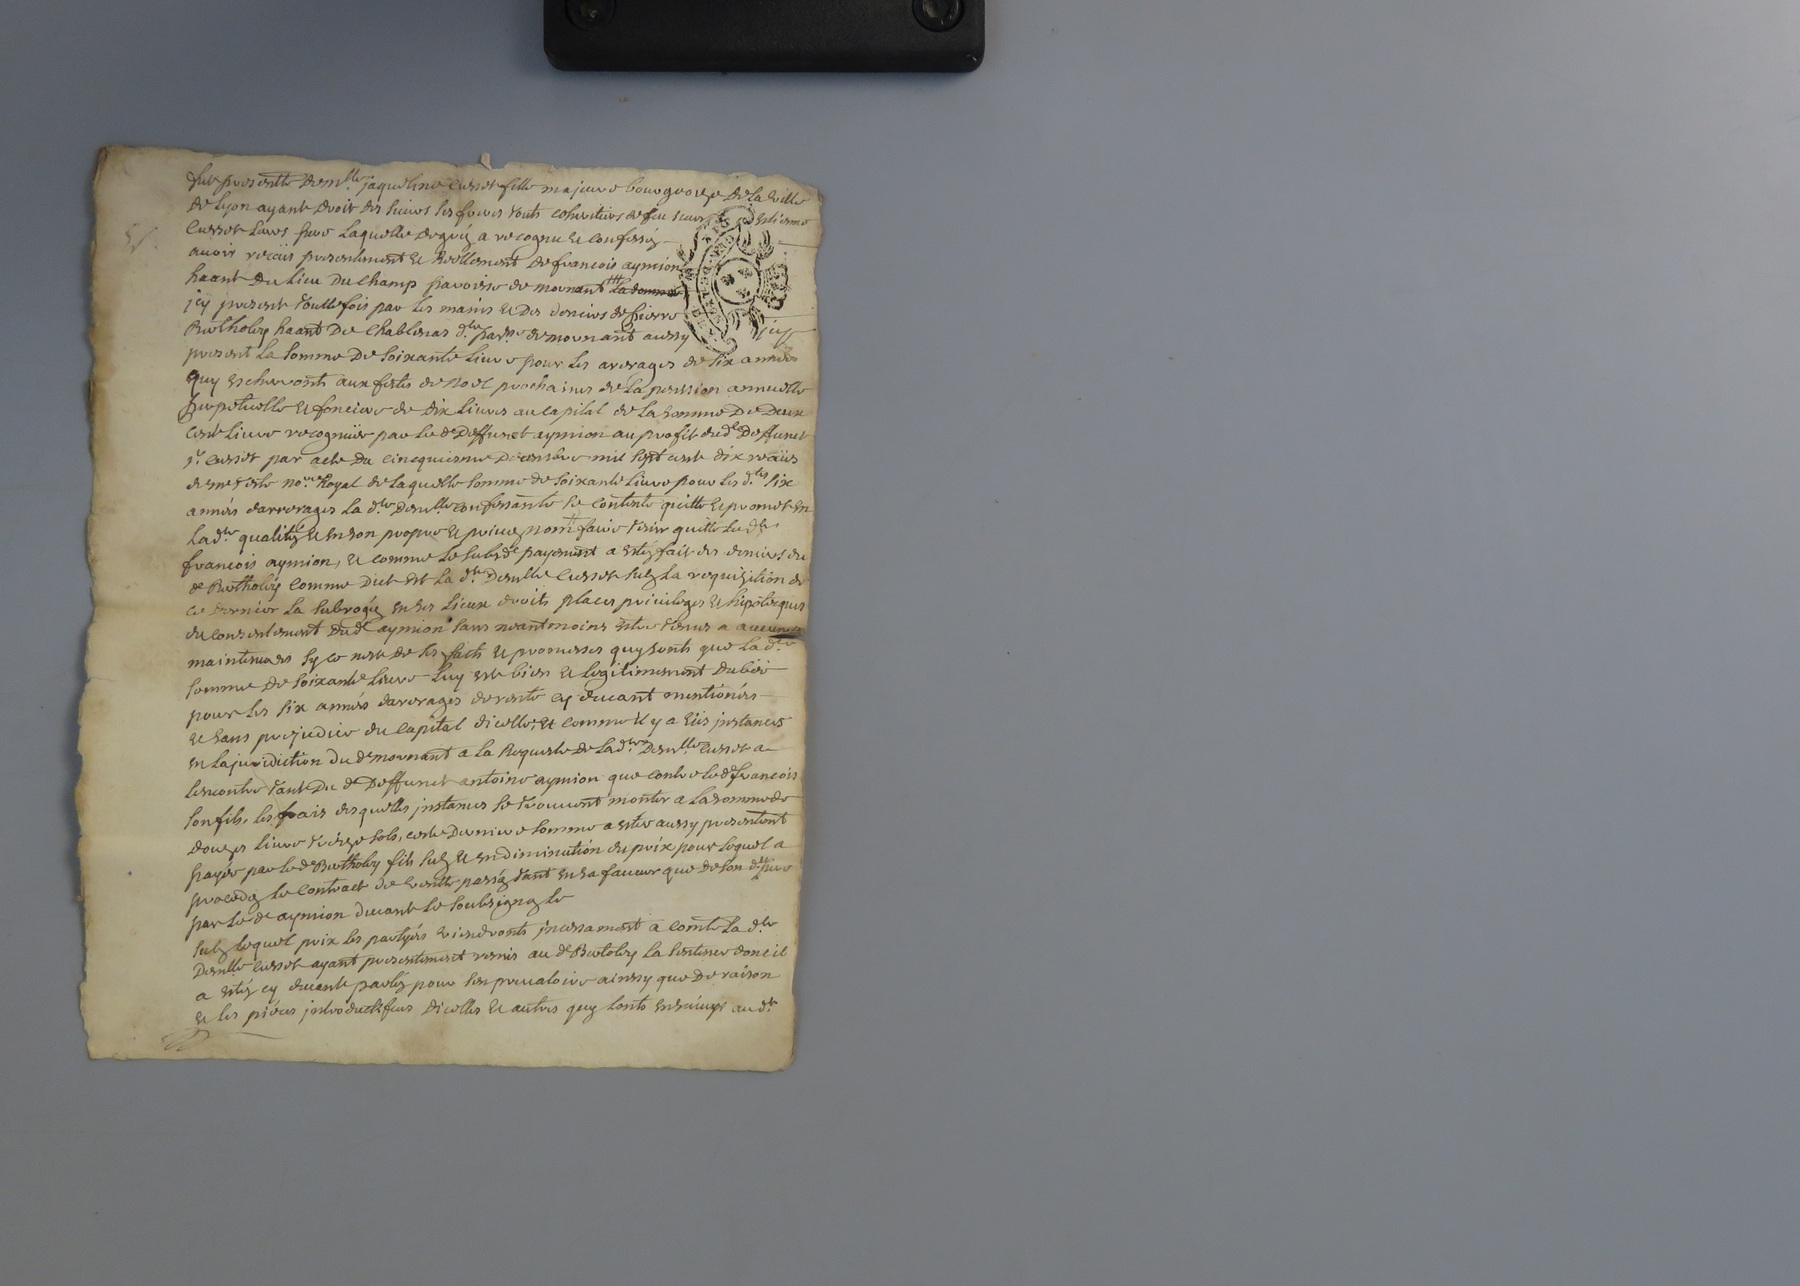 fut presente Demlle jaqueline Cusset fille majeure bourgeoize de la ville
de Lyon ayant droit des sieurs ses freres touts coheritiers de feu sieur estienne
Cusset leurs pere laquelle de gréz a recognu et confesséz
avoir recüs presentement et Reellement de francois aymion
haant du lieu du Champ paroisse de mornant la somme
jcy present touttefois par les mains et des deniers de pierre
Bertholey haant de Chablenas dte parse de mornant aussy jcy
present la somme de soixante livre pour les arerages de six années
quy escheronts aux festes de Noel prochaines de la penssion annuelle
perpetuelle et fonciere de dix livres au capital de la somme de Deux
cent livre recogniüe par le dt Deffunct aymion au profit dudt Deffunct
sr Cusset par acte du cinequiesme Decembre mil sept cent dix recüs
de me nore Royal de laquelle somme de soixante livre pour lesdtes six
années darrerages la dte Demlle confessante se contente quitte et promet en
la dte qualitéz et en son propre et privez nom faire tenir quitte le dt
francois aymion, et comme le susdt payement a estéz fait des deniers du
dt Bertholey comme dict est la dte Demlle Cusset sus la requizition de
ce dernier la subrogéz en ses lieux droits places privileges et hipoteques
du consentement dudt aymion sans neantmoins estre tenus a aucunes
maintenües sy ce nest de ses faits et promesses quy sonts que la dte
somme de soixante livre luy est bien et legitimement dubüe
pour les six années darerages de rente cy devant mentionées
et sans prejudice du capital dicelle, et comme il y a eüs jnstances
en la juridiction du dt mornant a la Requeste de la dte Demlle Cusset a
lencontre tant du dt Deffunct antoine aymion que contre le dt francois
son fils, les frais desquelles jnstances se trouvent monter a la somme de
douzes livre treize sols, ceste derniere somme a estee aussy presentemt
payée par le dt Bertholey fils sus et en diminution du prix pour lequel a
procedéz le contract de vente passéz tant en sa faveur que de son dt pere
par le dt aymion devant le soubsignéz le
sus lequel prix les partyes viendronts jncessament a comte la dte
Demlle Cusset ayant presentement remis au dt Bertoley la sentence dont il
a estéz cy devant parléz pour sen prevaloire ainssy que de raison
et les piéces jntroductifues dicelles et autres quy sonts au dt